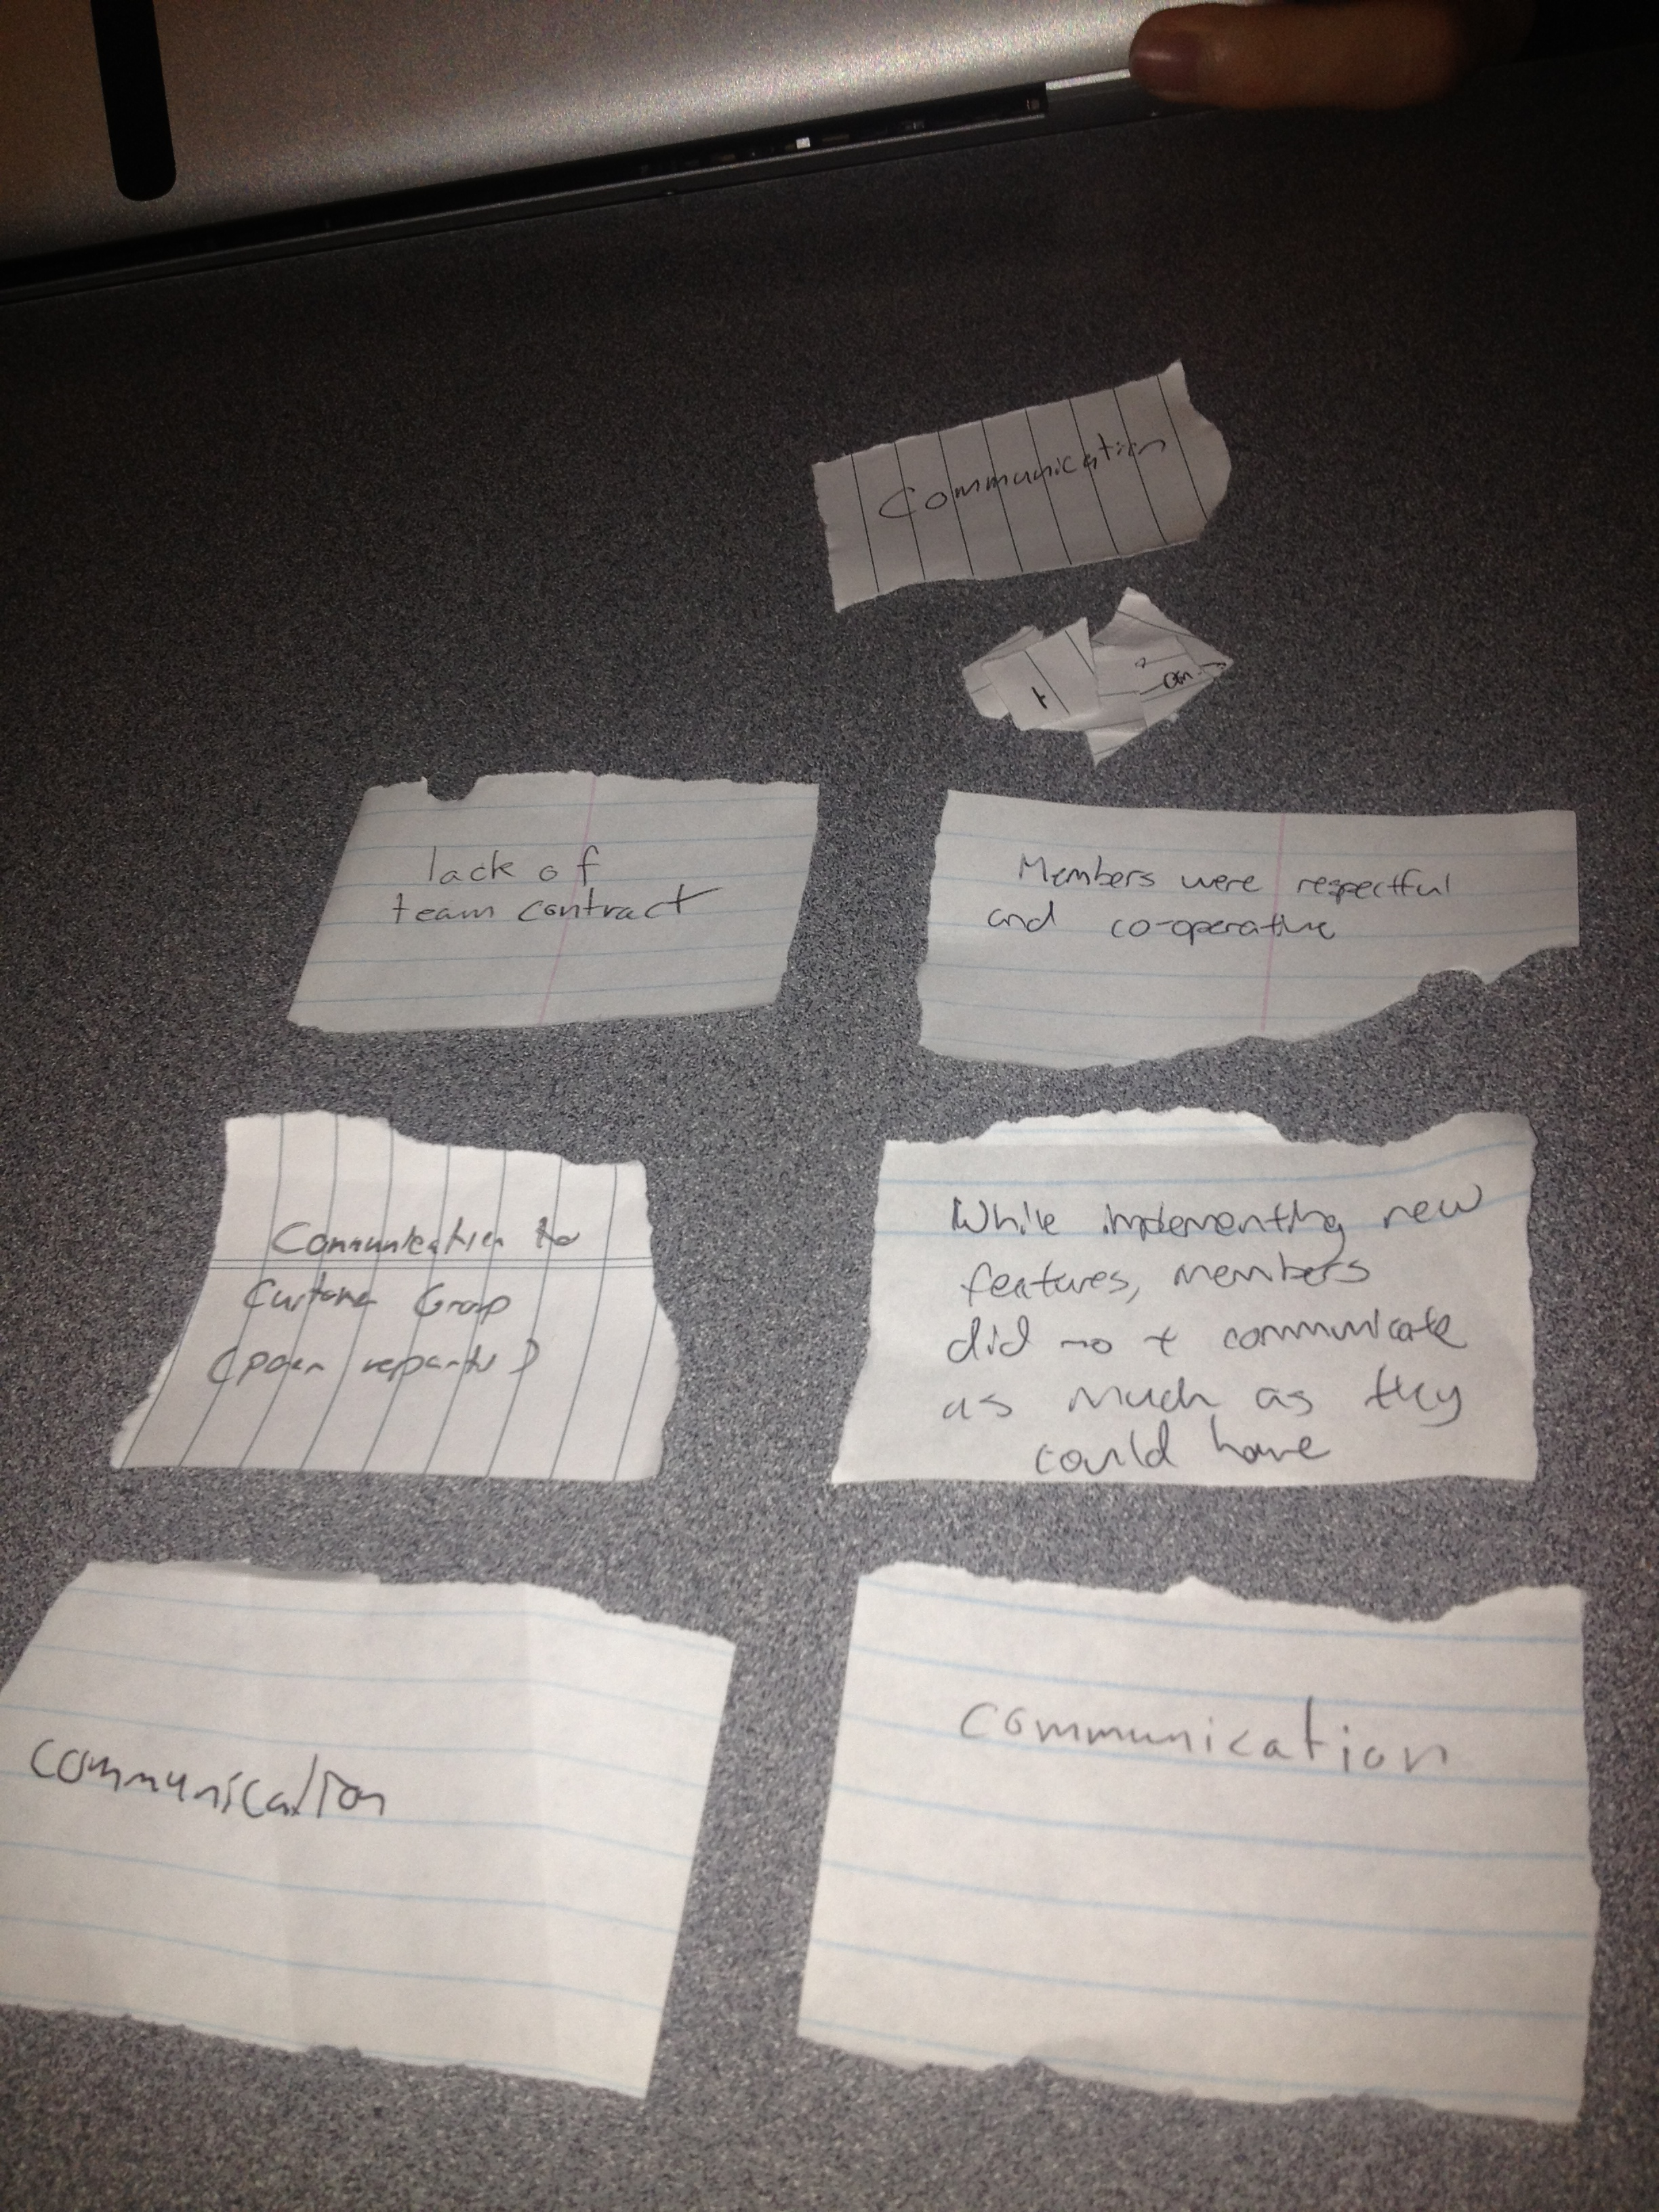 Communication
on
lack of
team contract
Members were respectful
and co-operative
Communication to
Customer Group
(poor reports)
While implementing new
features, members
did not communicate
as much as they
could have
communication
communication